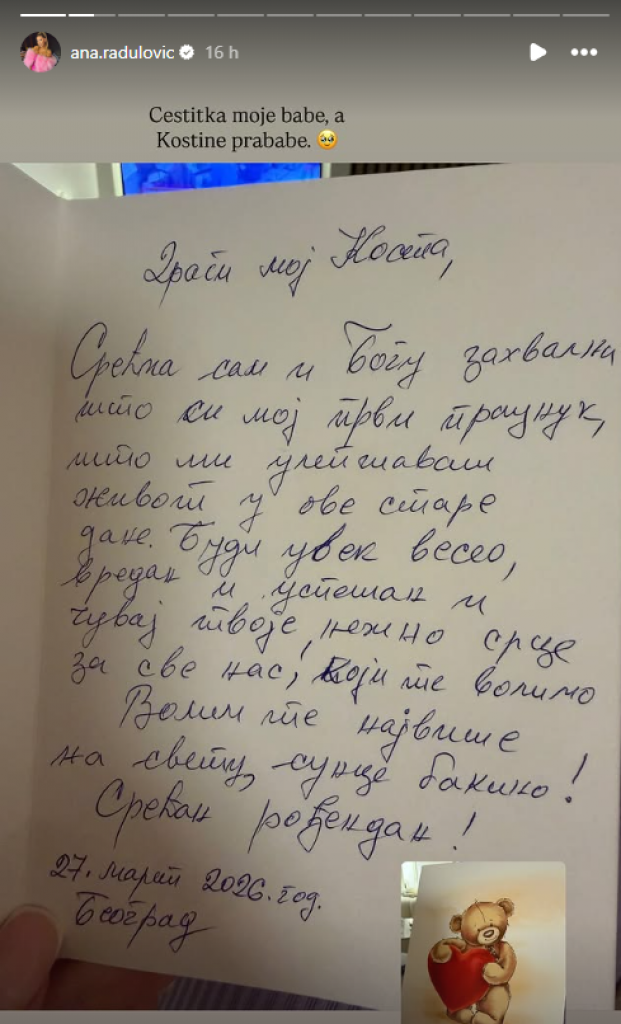 ana.radulovic 16 h
Cestitka moje babe, a
Kostine prababe. 🥹
Драги мој Коста,
Срећна сам и Богу захвална
што си мој први праунук,
што ми улепшаваш
живот у ове старе
дане. Буди увек весео,
вредан и успешан и
чувај твоје, нежно срце
за све нас, који те волимо
Волим те највише
на свету, сунце бакино!
Срећан рођендан!
27. март 2026. год.
Београд